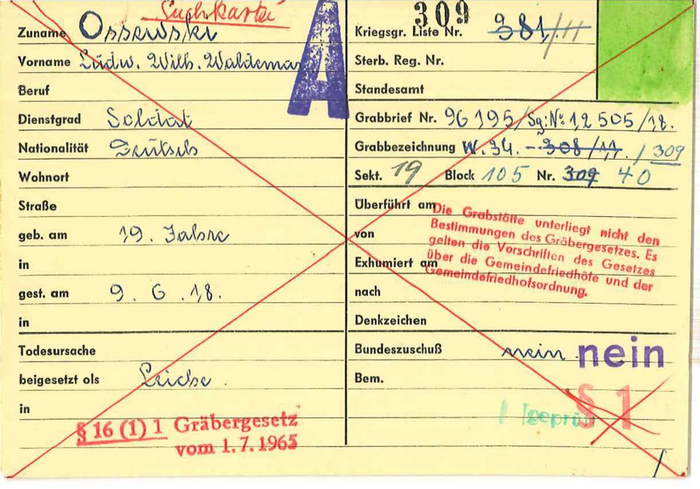 Suchkartei
A
Zuname Ossewski
Vorname Ludw. Wilh. Waldemar
Beruf
Dienstgrad Soldat
Nationalität Deutsch
Wohnort
Straße
geb. am 19. Jahre
in
gest. am 9. 6. 18.
in
Todesursache
beigesetzt als Leiche.
in
§ 16 (1) 1 Gräbergesetz
vom 1. 7. 1965
309
Kriegsgr. Liste Nr. 381/11
Sterb. Reg. Nr.
Standesamt
Grabbrief Nr. 96195/Sg: No 12505/18.
Grabbezeichnung W. 34. - 308/11. / 309
Sekt. 19 Block 105 Nr. 309 40
Überführt am
von
Exhumiert am
nach
Die Grabstätte unterliegt nicht den
Bestimmungen des Gräbergesetzes. Es
gelten die Vorschriften des Gesetzes
über die Gemeindefriedhöfe und der
Gemeindefriedhofsordnung.
Denkzeichen
Bundeszuschuß nein nein
Bem.
geprüft
§ 1